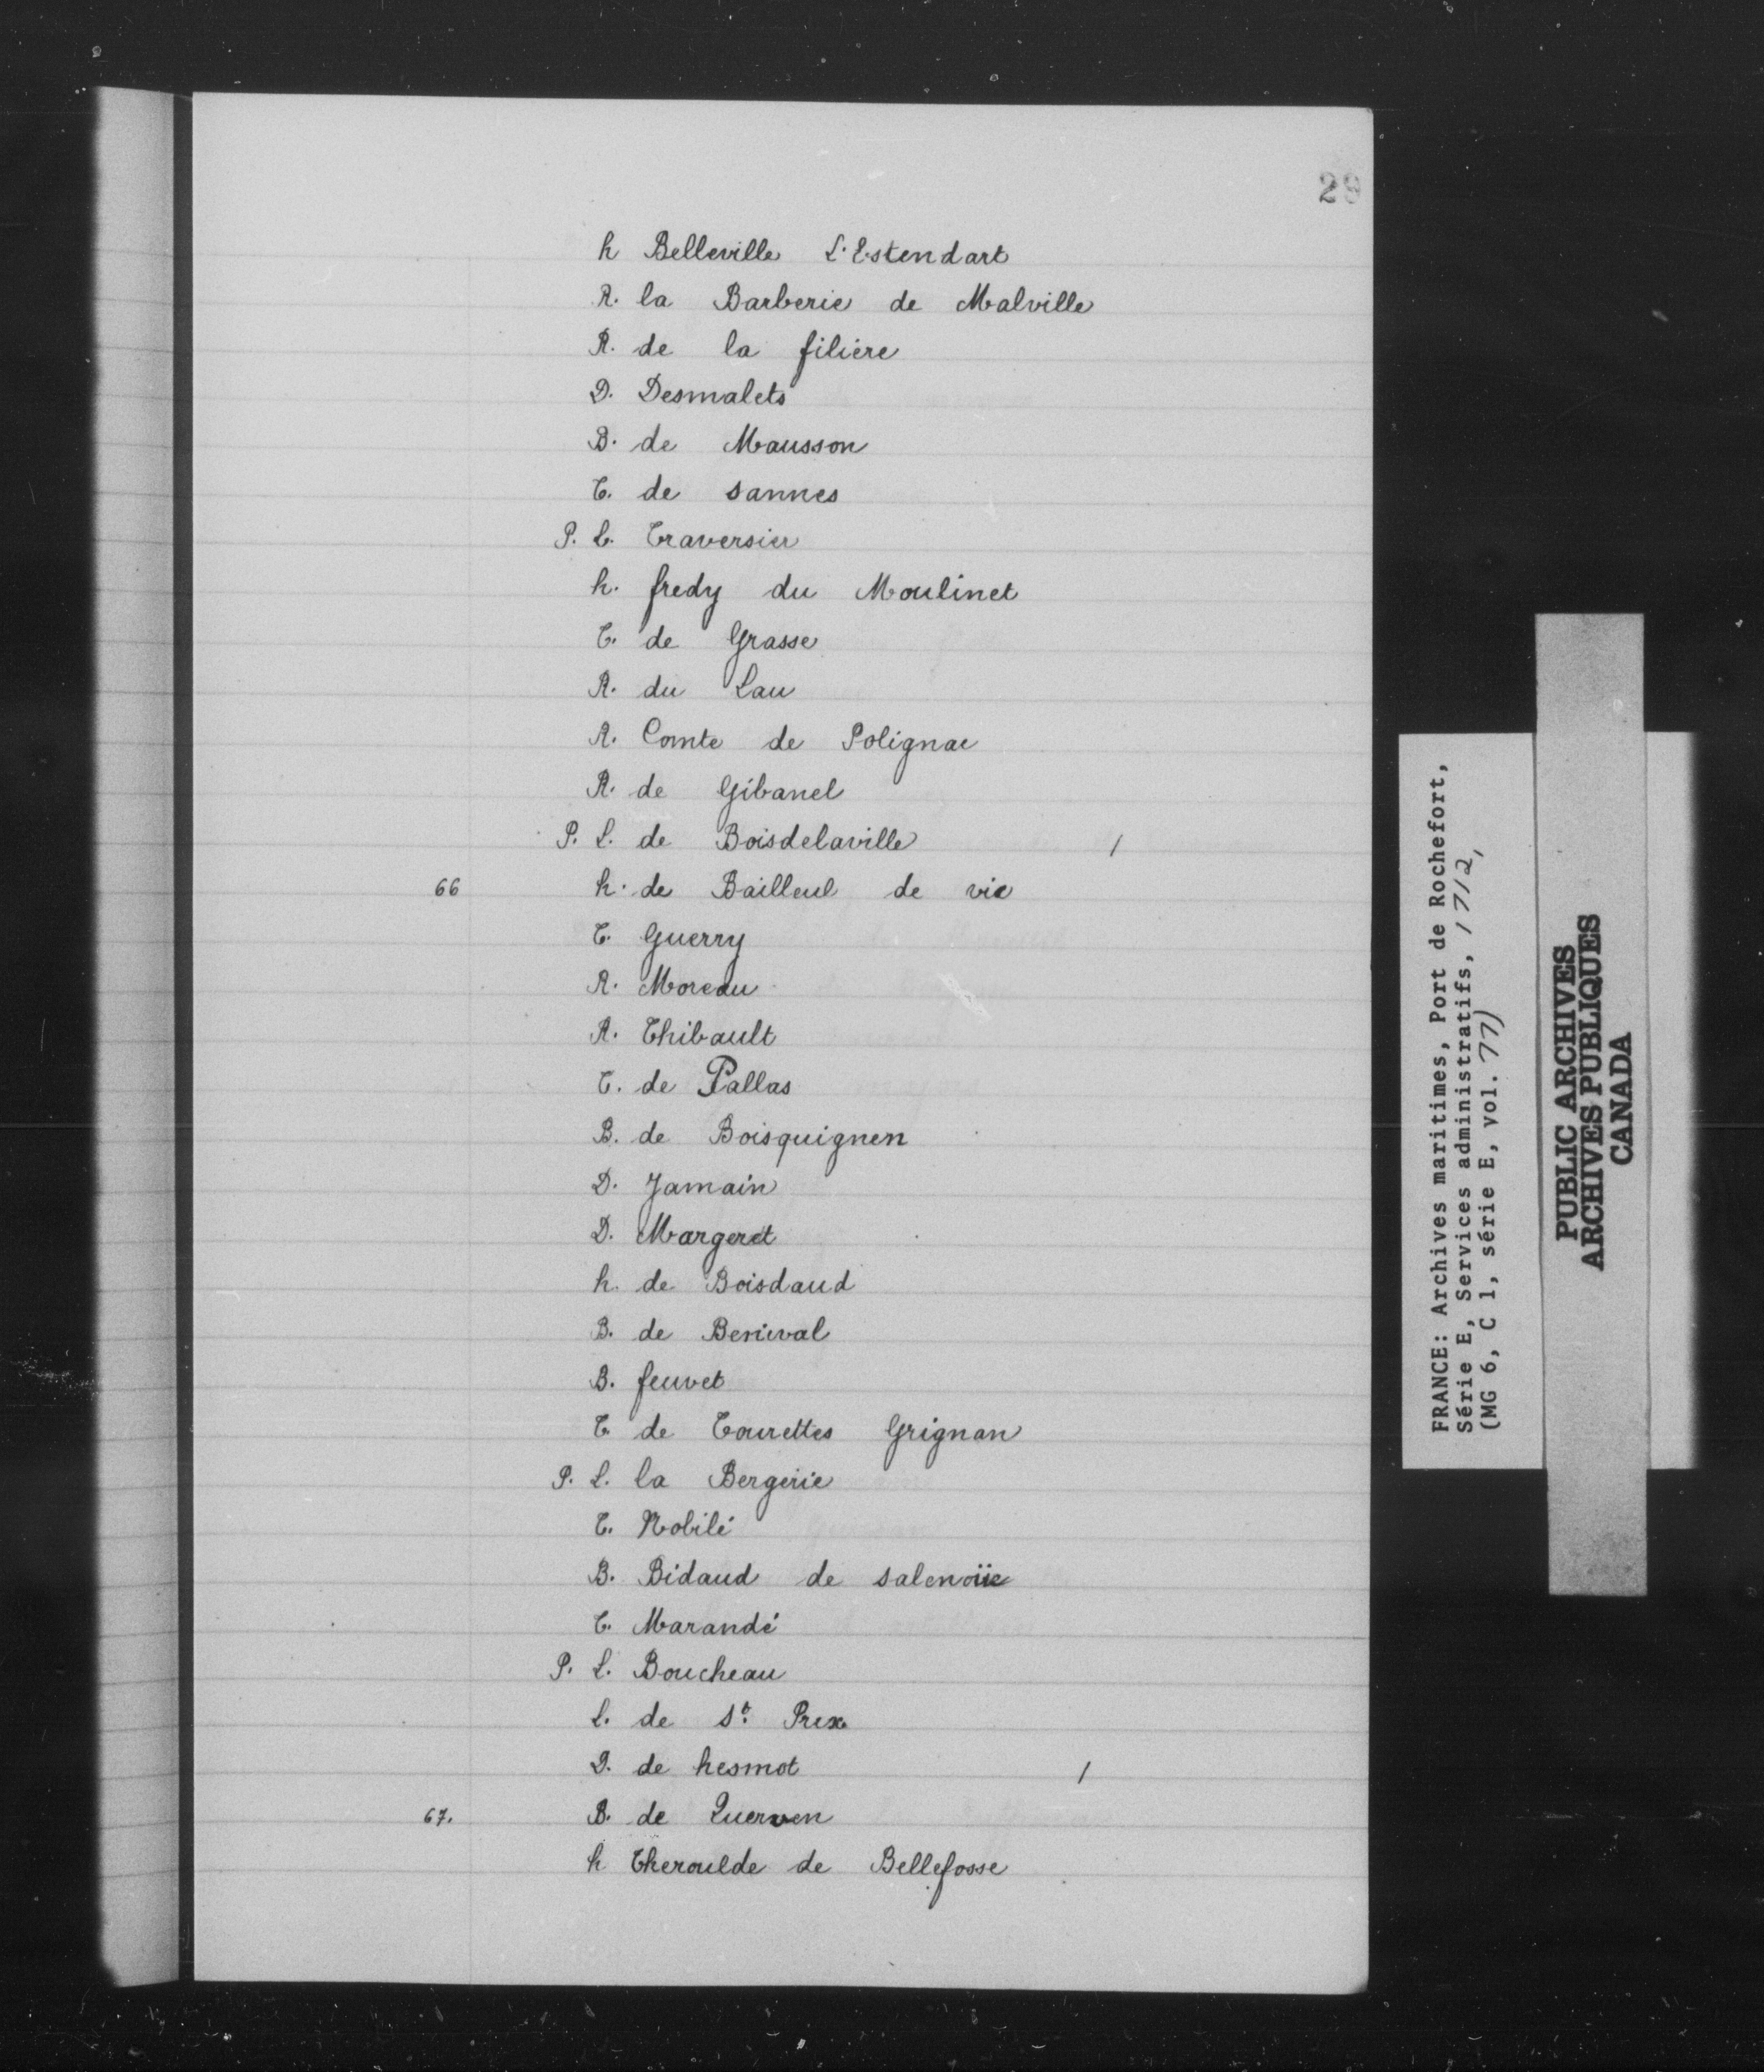 29
h Belleville L'Estendart
R. la Barberie de Malville
R. de la filiere
D. Desmalets
B. de Mausson
T. de sannes
P. L. Traversier
h. fredy du Moulinet
T. de Grasse
R. du Lau
R. Comte de Polignac
R. de Gibanel
P. L. de Boisdelaville /
66 h. de Bailleul de vic
T. Guerry
R. Moreau
R. Thibault
T. de Pallas
B. de Boisguignen
D. Jamain
D. Margeret
h. de Boisdaud
B. de Benieval
B. feuvet
T. de Tourettes Grignan
P. L. la Bergerie
T. Nobilé
B. Bidaud de salenoüe
T. Marandé
P. L. Boucheau
L. de St. Prix
D. de hesmot /
67. B. de Querven
h Theroulde de Bellefosse
FRANCE: Archives maritimes, Port de Rochefort,
Série E, Services administratifs, 1712,
(MG 6, C 1, série E, vol. 77)
PUBLIC ARCHIVES
ARCHIVES PUBLIQUES
CANADA